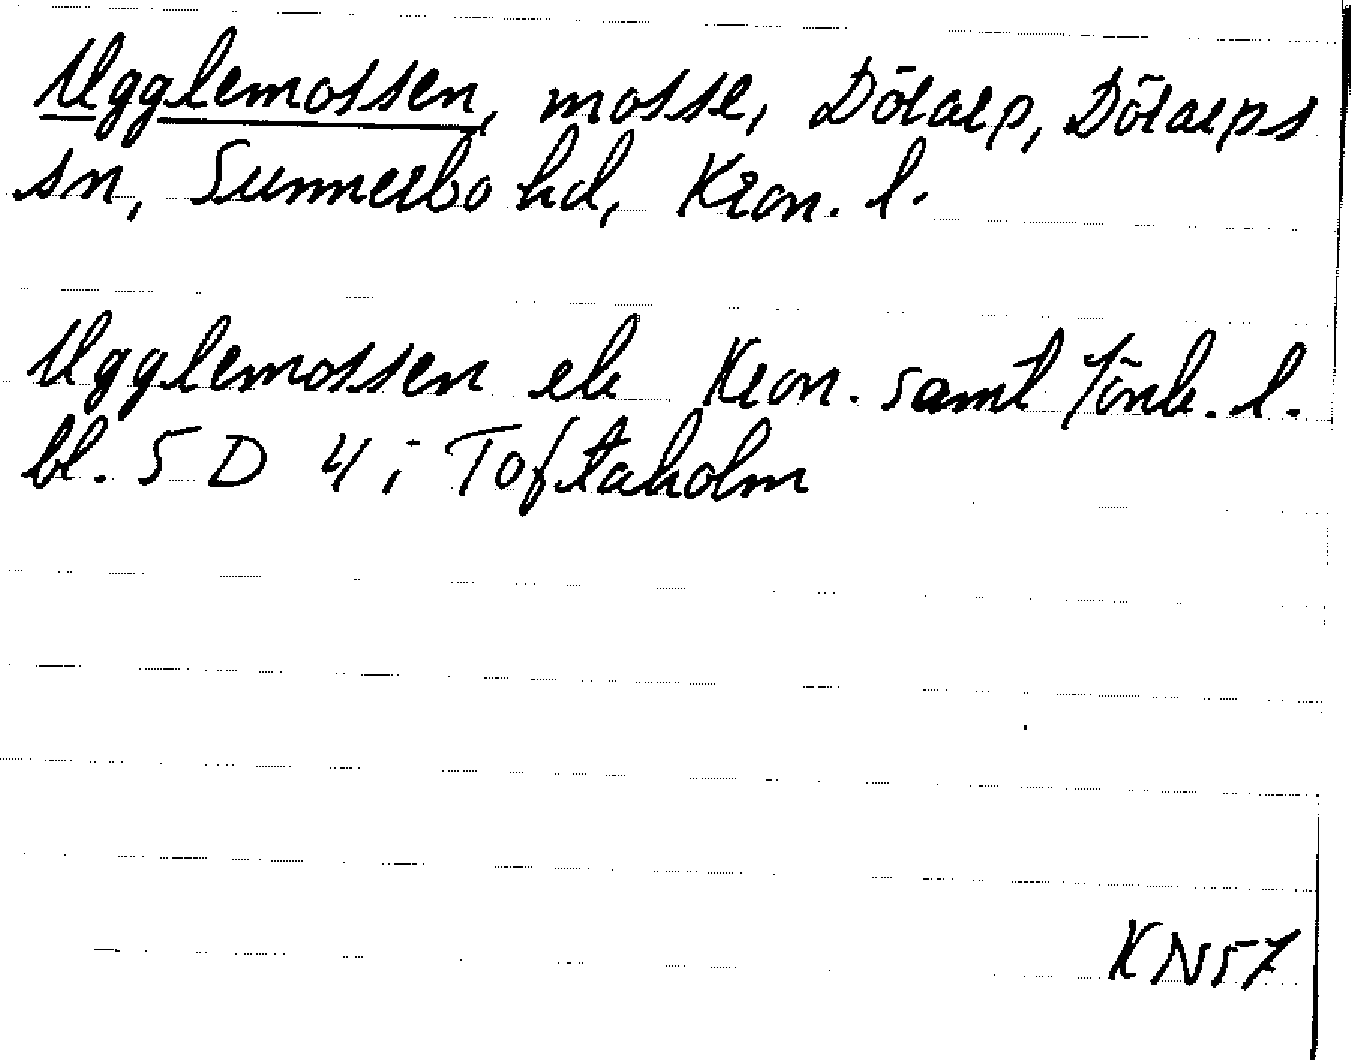 Ugglemossen, mosse, Dörarp, Dörarps
sn, Sunnerbo hd, Kron. l.
Ugglemossen ek Kron. samt Jönk. l.
bl. 5 D 4 i Toftaholm
KN57